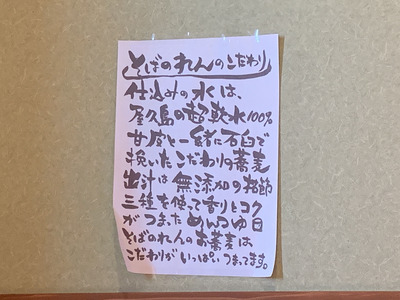 そばのれんのこだわり
仕込みの水は、
屋久島の超軟水100%
甘皮と一緒に石臼で
挽いたこだわりの蕎麦
出汁は無添加の本節
三種を使って香りとコク
がつまっためんつゆ
そばのれんのお蕎麦は、
こだわりがいっぱいつまってます。